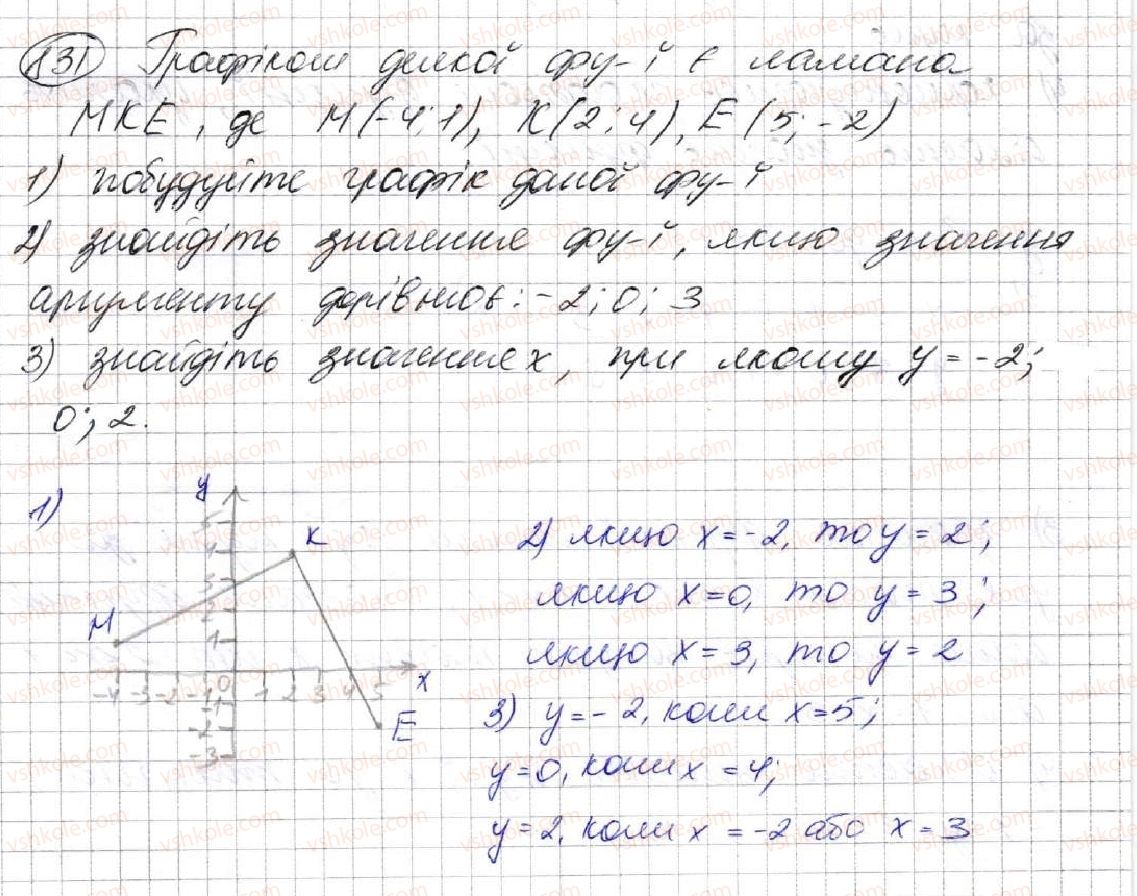 131 Графіком деякої фу-ї є ламана
МКЕ, де М(-4;1), К(2;4), Е(5;-2)
1) побудуйте графік даної фу-ї
2) знайдіть значення фу-ї, якщо значення
аргументу дорівнює: -2; 0; 3
3) знайдіть значення х, при якому у = -2;
0; 2.
1)
у
5
4
К
3
2
М
1
-4 -3 -2 -1 0 1 2 3 4 5 х
-1
-2
Е
-3
2) якщо х = -2, то у = 2;
якщо х = 0, то у = 3;
якщо х = 3, то у = 2
3) у = -2, коли х = 5;
у = 0, коли х = 4;
у = 2, коли х = -2 або х = 3
vshkole.com